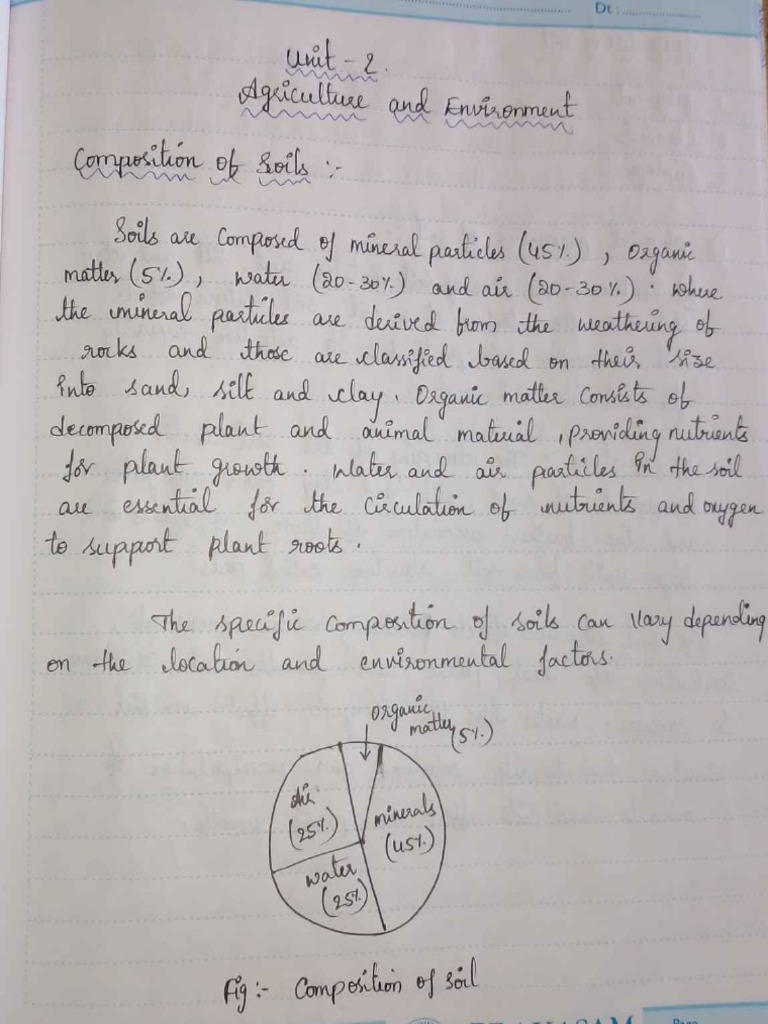 Dt:
Unit - 2.
Agriculture and Environment
Composition of Soils :-
Soils are composed of mineral particles (45%), organic
matter (5%), water (20-30%) and air (20-30%). where
the mineral particles are derived from the weathering of
rocks and those are classified based on their size
into sand, silt and clay. Organic matter consists of
decomposed plant and animal material, providing nutrients
for plant growth. Water and air particles in the soil
are essential for the circulation of nutrients and oxygen
to support plant roots.
The specific composition of soils can vary depending
on the location and environmental factors.
organic
matter (5%)
Air
(25%)
minerals
(45%)
water
(25%)
Fig :- Composition of soil